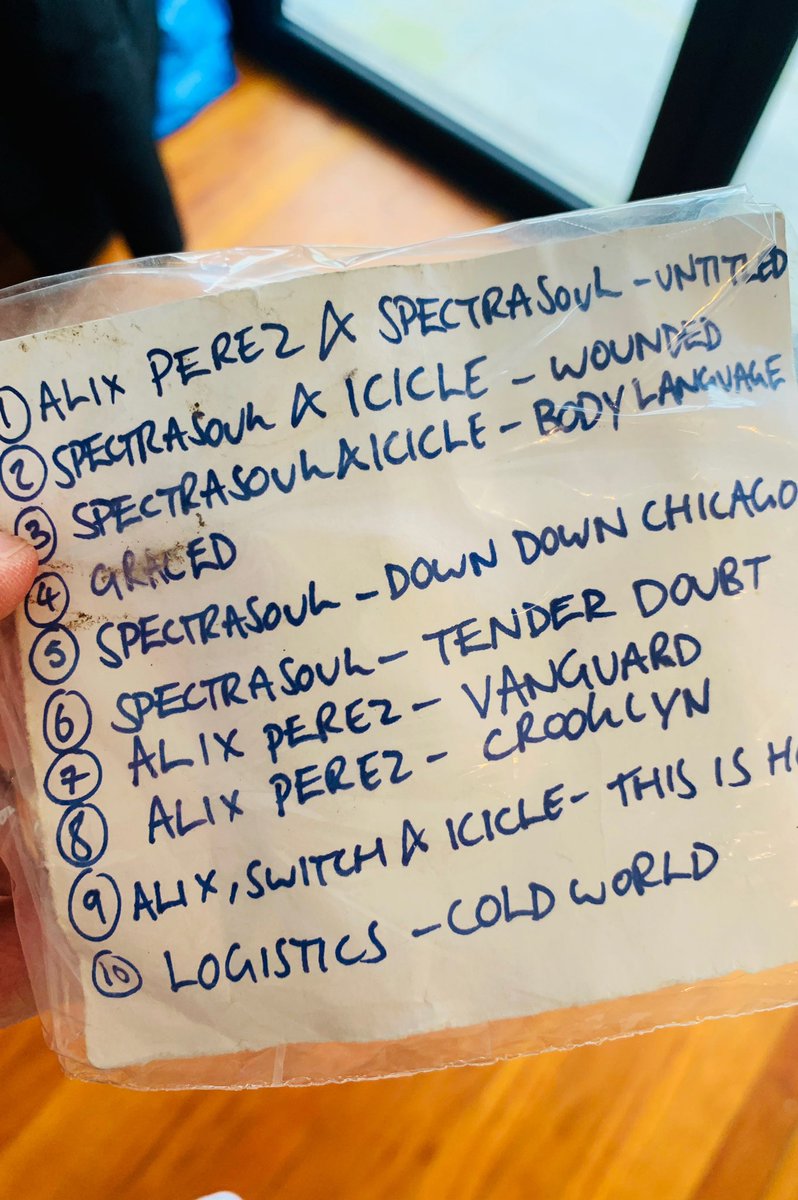 ① ALIX PEREZ & SPECTRASOUL - UNTITLED
② SPECTRASOUL & ICICLE - WOUNDED
③ SPECTRASOUL & ICICLE - BODY LANGUAGE
④ GRACED
⑤ SPECTRASOUL - DOWN DOWN CHICAGO
⑥ SPECTRASOUL - TENDER DOUBT
⑦ ALIX PEREZ - VANGUARD
⑧ ALIX PEREZ - CROOKLYN
⑨ ALIX, SWITCH & ICICLE - THIS IS
⑩ LOGISTICS - COLD WORLD